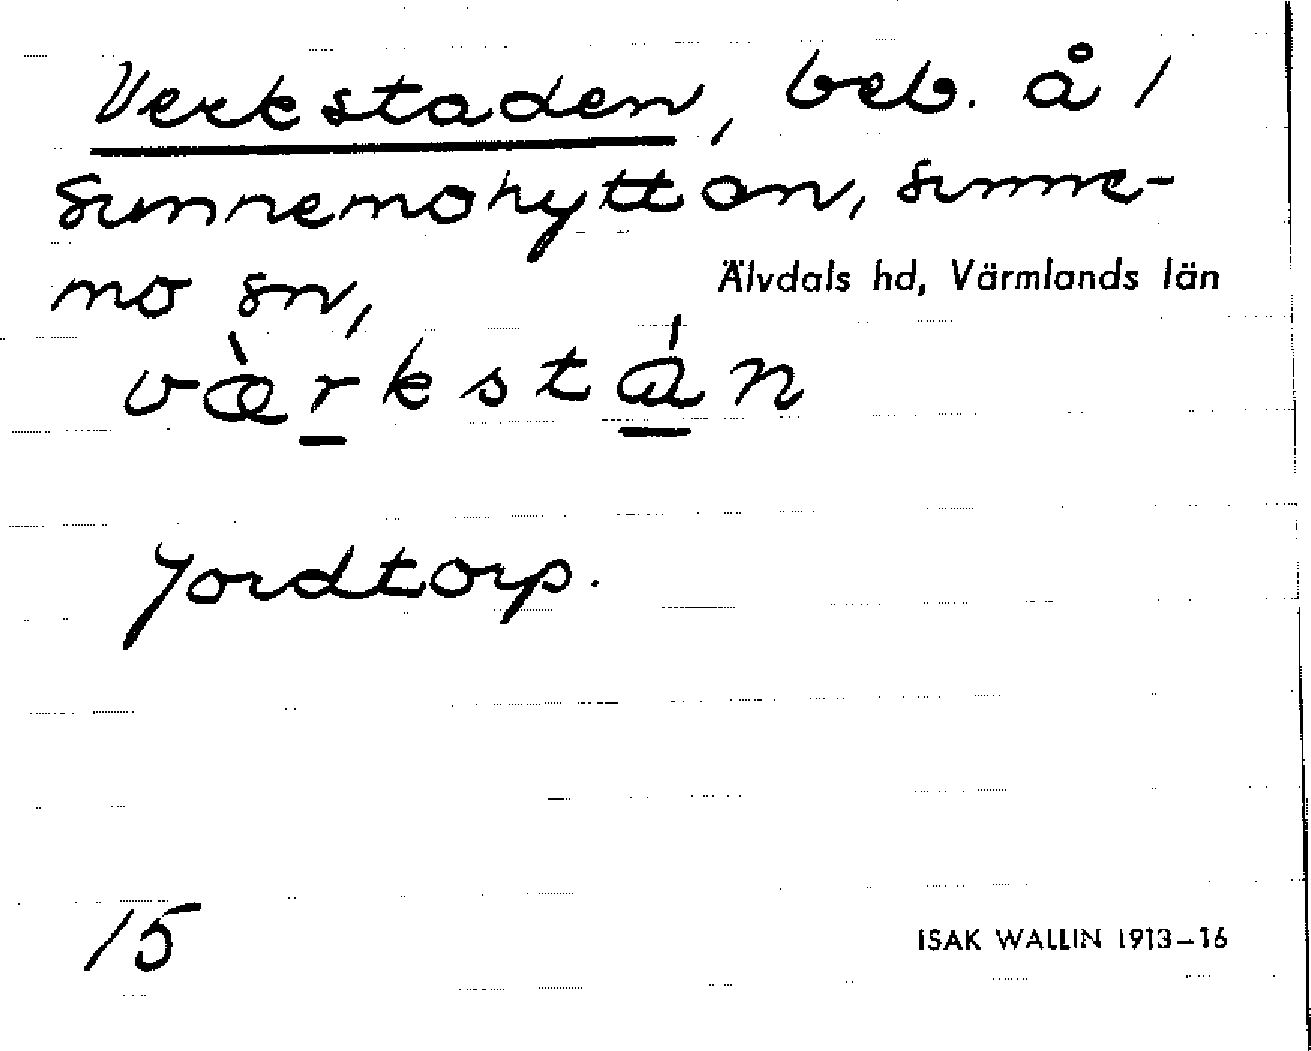 Verkstaden, beb. å 1
Sunnemohyttan, Sunne-
mo sn, Älvdals hd, Värmlands län
væ̀rkstán
Jordtorp.
15
ISAK WALLIN 1913–16